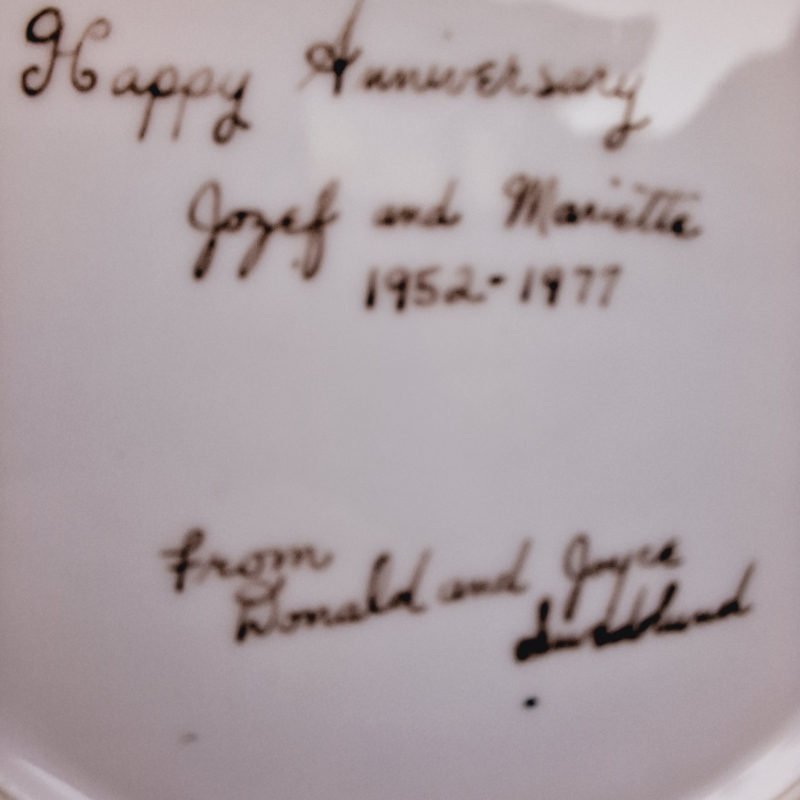 Happy Anniversary
Jozef and Mariette
1952-1977
From
Donald and Joyce